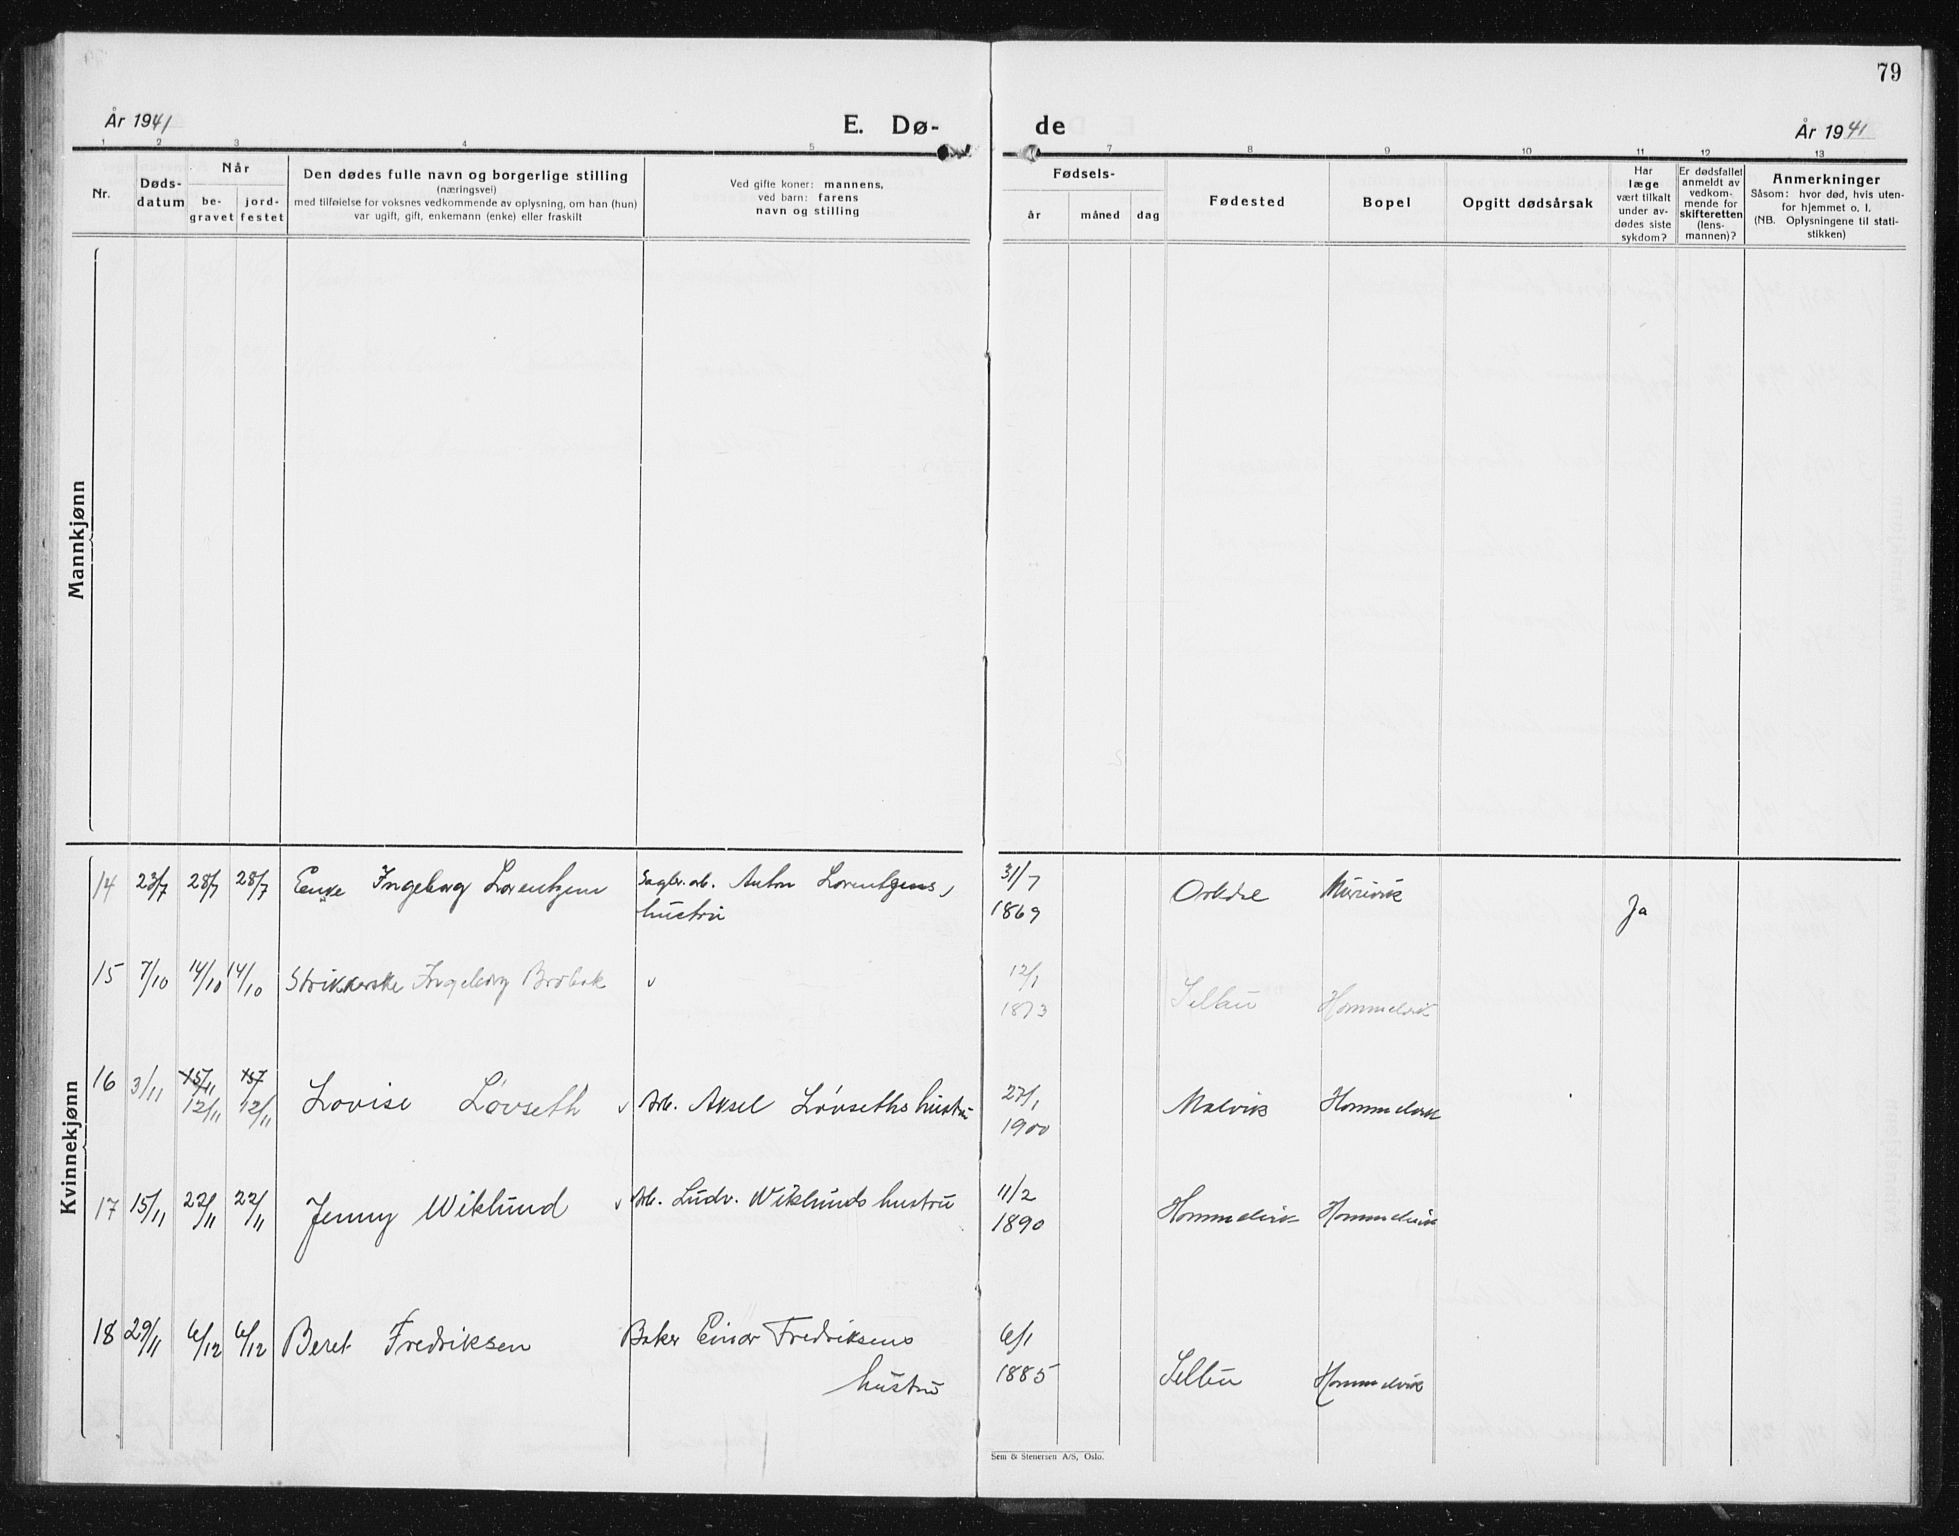 79
År 1941
E. Dø-
de
År 1941
1 2 3 4 5 7 8 9 10 11 12 13
Nr.
Døds-
datum
Når
be-
gravet
jord-
festet
Den dødes fulle navn og borgerlige stilling
(næringsvei)
med tilføielse for voksnes vedkommende av oplysning, om han (hun)
var ugift, gift, enkemann (enke) eller fraskilt
Ved gifte koner: mannens,
ved barn: farens
navn og stilling
Fødsels-
år måned dag
Fødested
Bopel
Opgitt dødsårsak
Har
læge
vært tilkalt
under av-
dødes siste
sykdom?
Er dødsfallet
anmeldt av
vedkom-
mende for
skifteretten
(lens-
mannen)?
Anmerkninger
Såsom: hvor død, hvis uten-
for hjemmet o. l.
(NB. Oplysningene til stati-
stikken)
Mannkjønn
Kvinnekjønn
14 23/7 28/7 28/7 Enke Ingeborg Lorentzen Sagbr.arb. Anton Lorentzens 31/7 Orkdal Muruvik
hustru 1869 Ja
15 7/10 14/10 14/10 Strikkerske Ingeborg Brobak 12/1 Selbu Hommelvik
1873
16 3/11 15/11 15/
12/11 12/11 Lovise Løvseth Arb. Aksel Løvseths hustru 27/1 Malvik Hommelvik
1900
17 15/11 22/11 22/11 Jenny Wiklund Arb. Ludv. Wiklunds hustru 11/2 Hommelvik Hommelvik
1890
18 29/11 6/12 6/12 Beret Fredriksen Baker Einar Fredriksens 6/1
hustru 1885 Selbu Hommelvik
Sem & Stenersen A/S, Oslo.